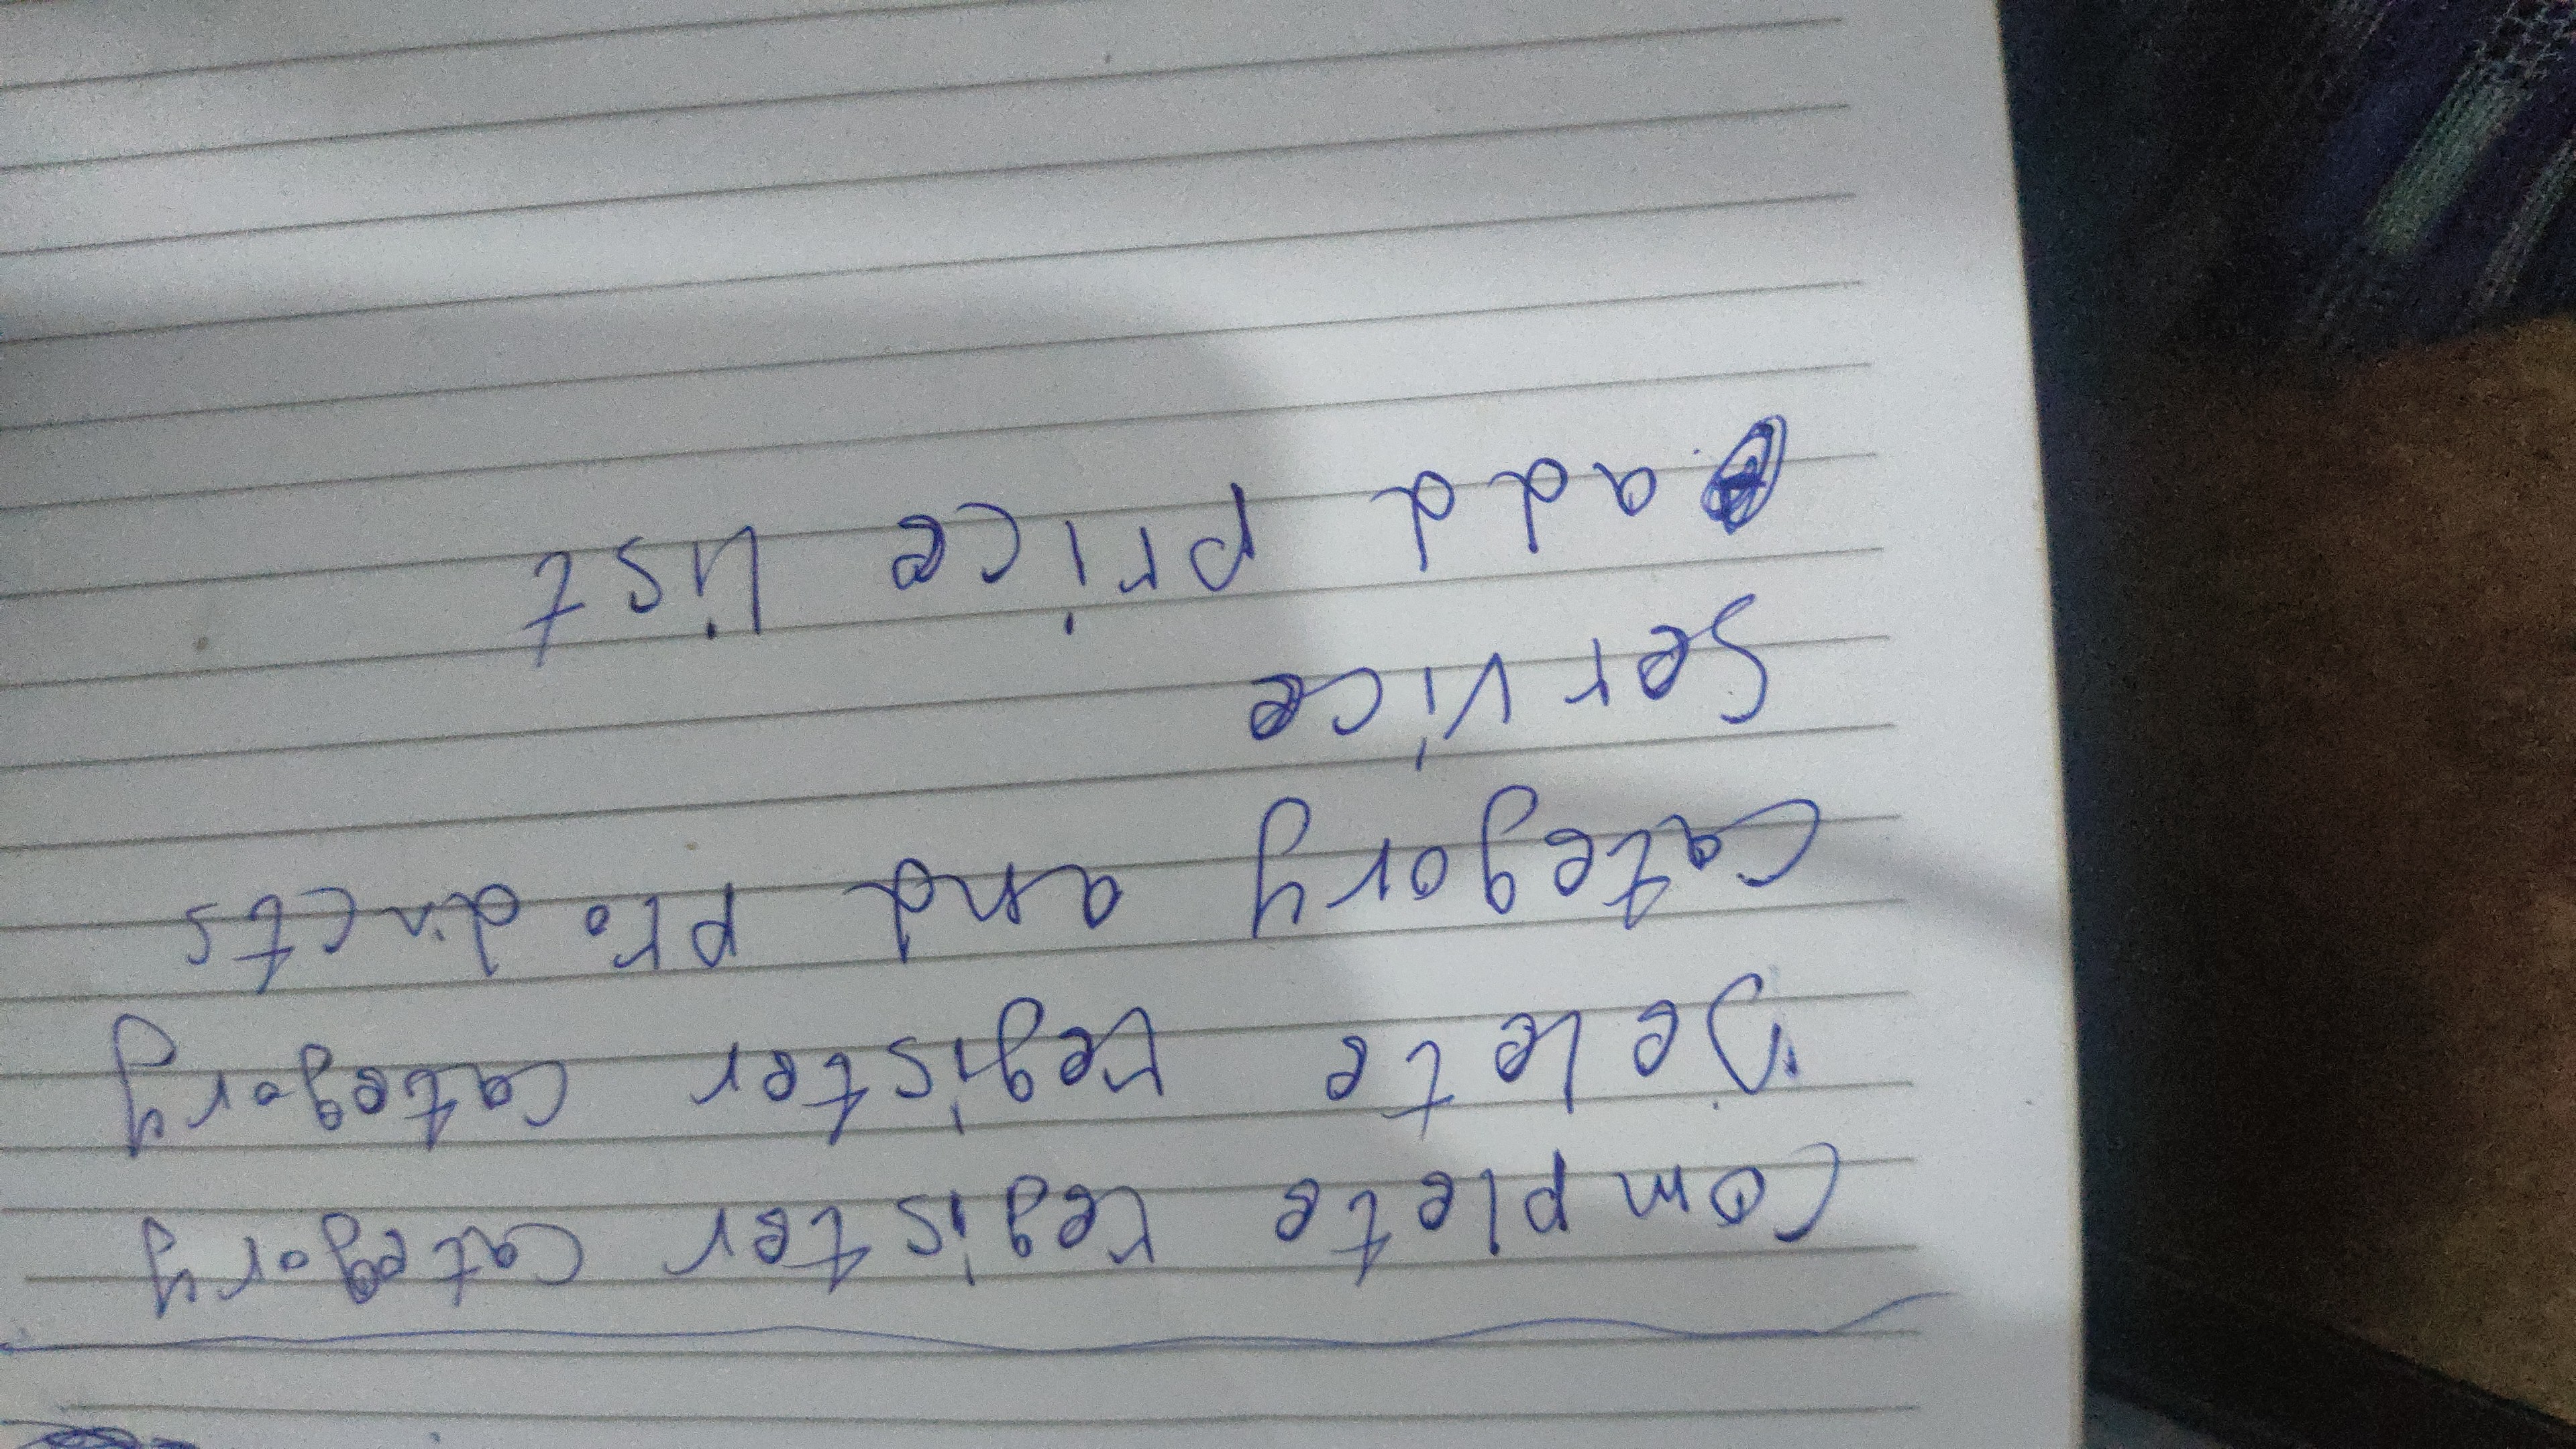 complete register category
Delete register category
category and products
service
add price list